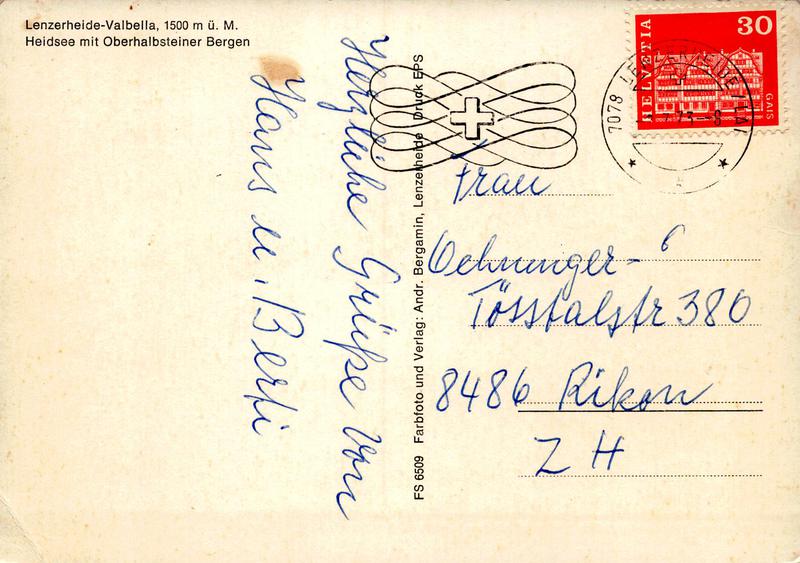 Lenzerheide-Valbella, 1500 m ü. M.
Heidsee mit Oberhalbsteiner Bergen
Herzliche Grüße von
Hans u. Berti
FS 6509 Farbfoto und Verlag: Andr. Bergamin, Lenzerheide Druck EPS
HELVETIA
30
GAIS
7078 LENZERHEIDE/LAI
73-8
Frau
Oehninger-
Tösstalstr 380
8486 Rikon
ZH